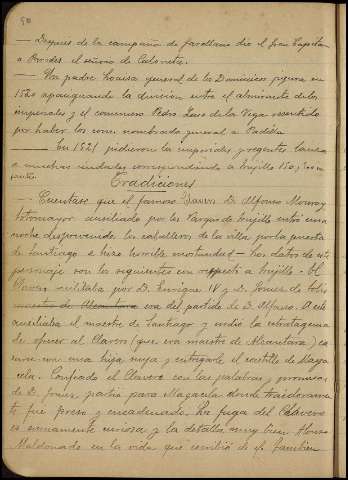 50
— Despues de la campaña de Garellano dio el Gran Capitan
a Paredes el señorio de Coloneta.
— Un padre Loaisa general de los Dominicos figura en
1520 apaciguando la division entre el almirante de los
imperiales y el comunero Pedro Laso de la Vega resentido
por haber los com. nombrado general a Padilla
— En 1521 pidieron los imperiales y regentes lanzas
a muchas ciudades, correspondiendo a Trujillo 150, 
Tradiciones
— Cuentase que el famoso Clavero D. Alfonso Monroy
Sotomayor auxiliado por los Vargas de Trujillo entró una
noche desprevenidos los caballeros de la villa por la puerta
de Santiago e hizo horrible mortandad — Los datos de este
personaje son los siguientes con respecto a Trujillo — El
Clavero militaba por D. Enrique IV y D. Gomez de Solis
maestre de Alcantara era del partido de D. Alfonso. A este
auxiliaba el maestre de Santiago y urdio la estratagema
de ofrecer al Clavero (que era maestre de Alcantara) ca
sarse con una hija suya y entregarle el castillo de Maga
cela. Confiado el Clavero con las palabras y promesas
de D. Gomez, partio para Magacela donde traidoramen
te fue preso y encadenado. La fuga del Clavero
es sumamente curiosa y la detalla muy bien Alonso
Maldonado en la vida que escribió de él. Tambien